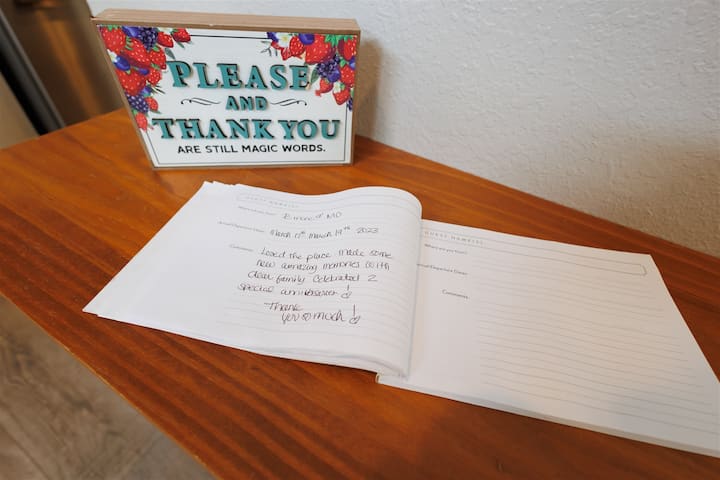 PLEASE
AND
THANK YOU
ARE STILL MAGIC WORDS.
GUEST NAME(S)
MD
Arrival/Departure Dates: March 17th March 19th 2023
Comments: Loved the place. Made some
new amazing memories with
dear family. Celebrated 2
special anniversary!
Thank
you so much!
GUEST NAME(S)
Where are you from?
Arrival/Departure Dates:
Comments: